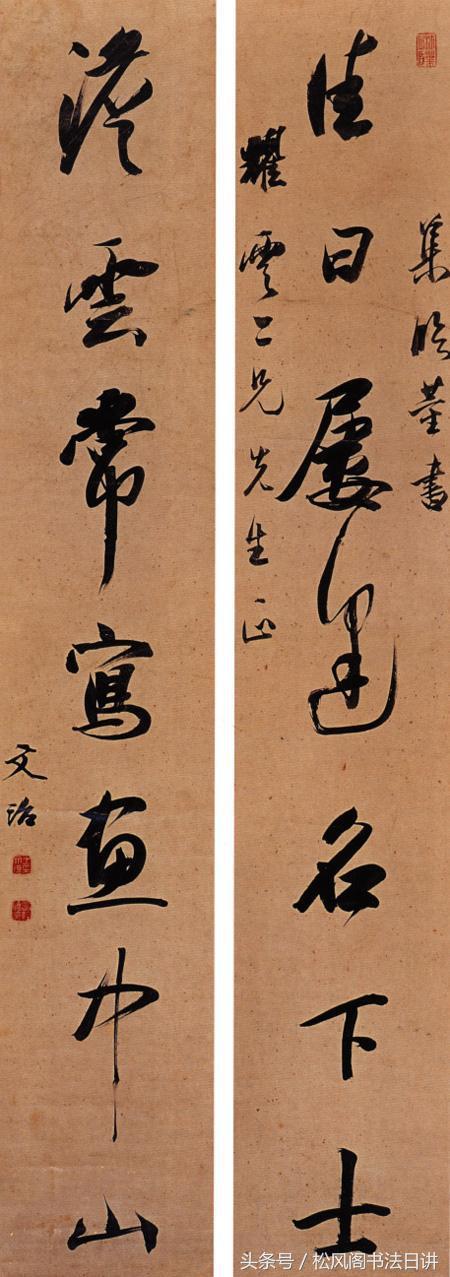 集臨董書
佳日屢逢名下士
耀雲二兄先生正
淡雲常寫畫中山
文治
头条号／松风阁书法日讲